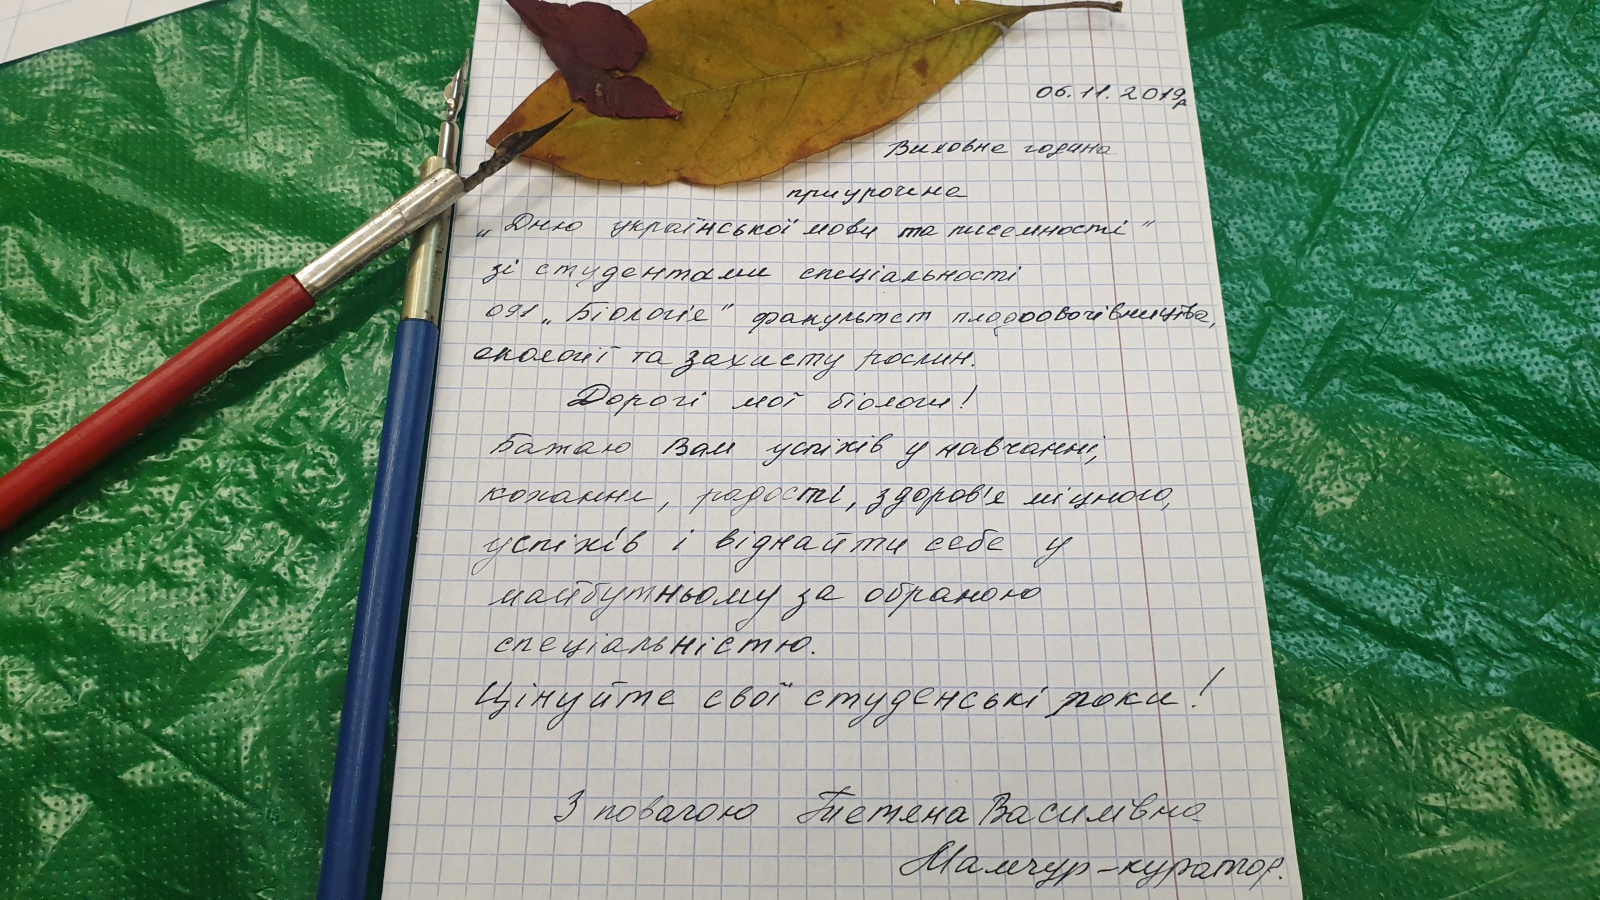 06.11.2019р
Виховна година
приурочена
„Дню української мови та писемності"
зі студентами спеціальності
091 „Біологія" факультет плодоовочівництва,
екології та захисту рослин.
Дорогі мої біологи!
Бажаю Вам успіхів у навчанні,
кохання, радості, здоров'я міцного,
успіхів і віднайти себе у
майбутньому за обраною
спеціальністю.
Цінуйте свої студенські роки!
З повагою Тетяна Василівна
Мамчур-куратор.